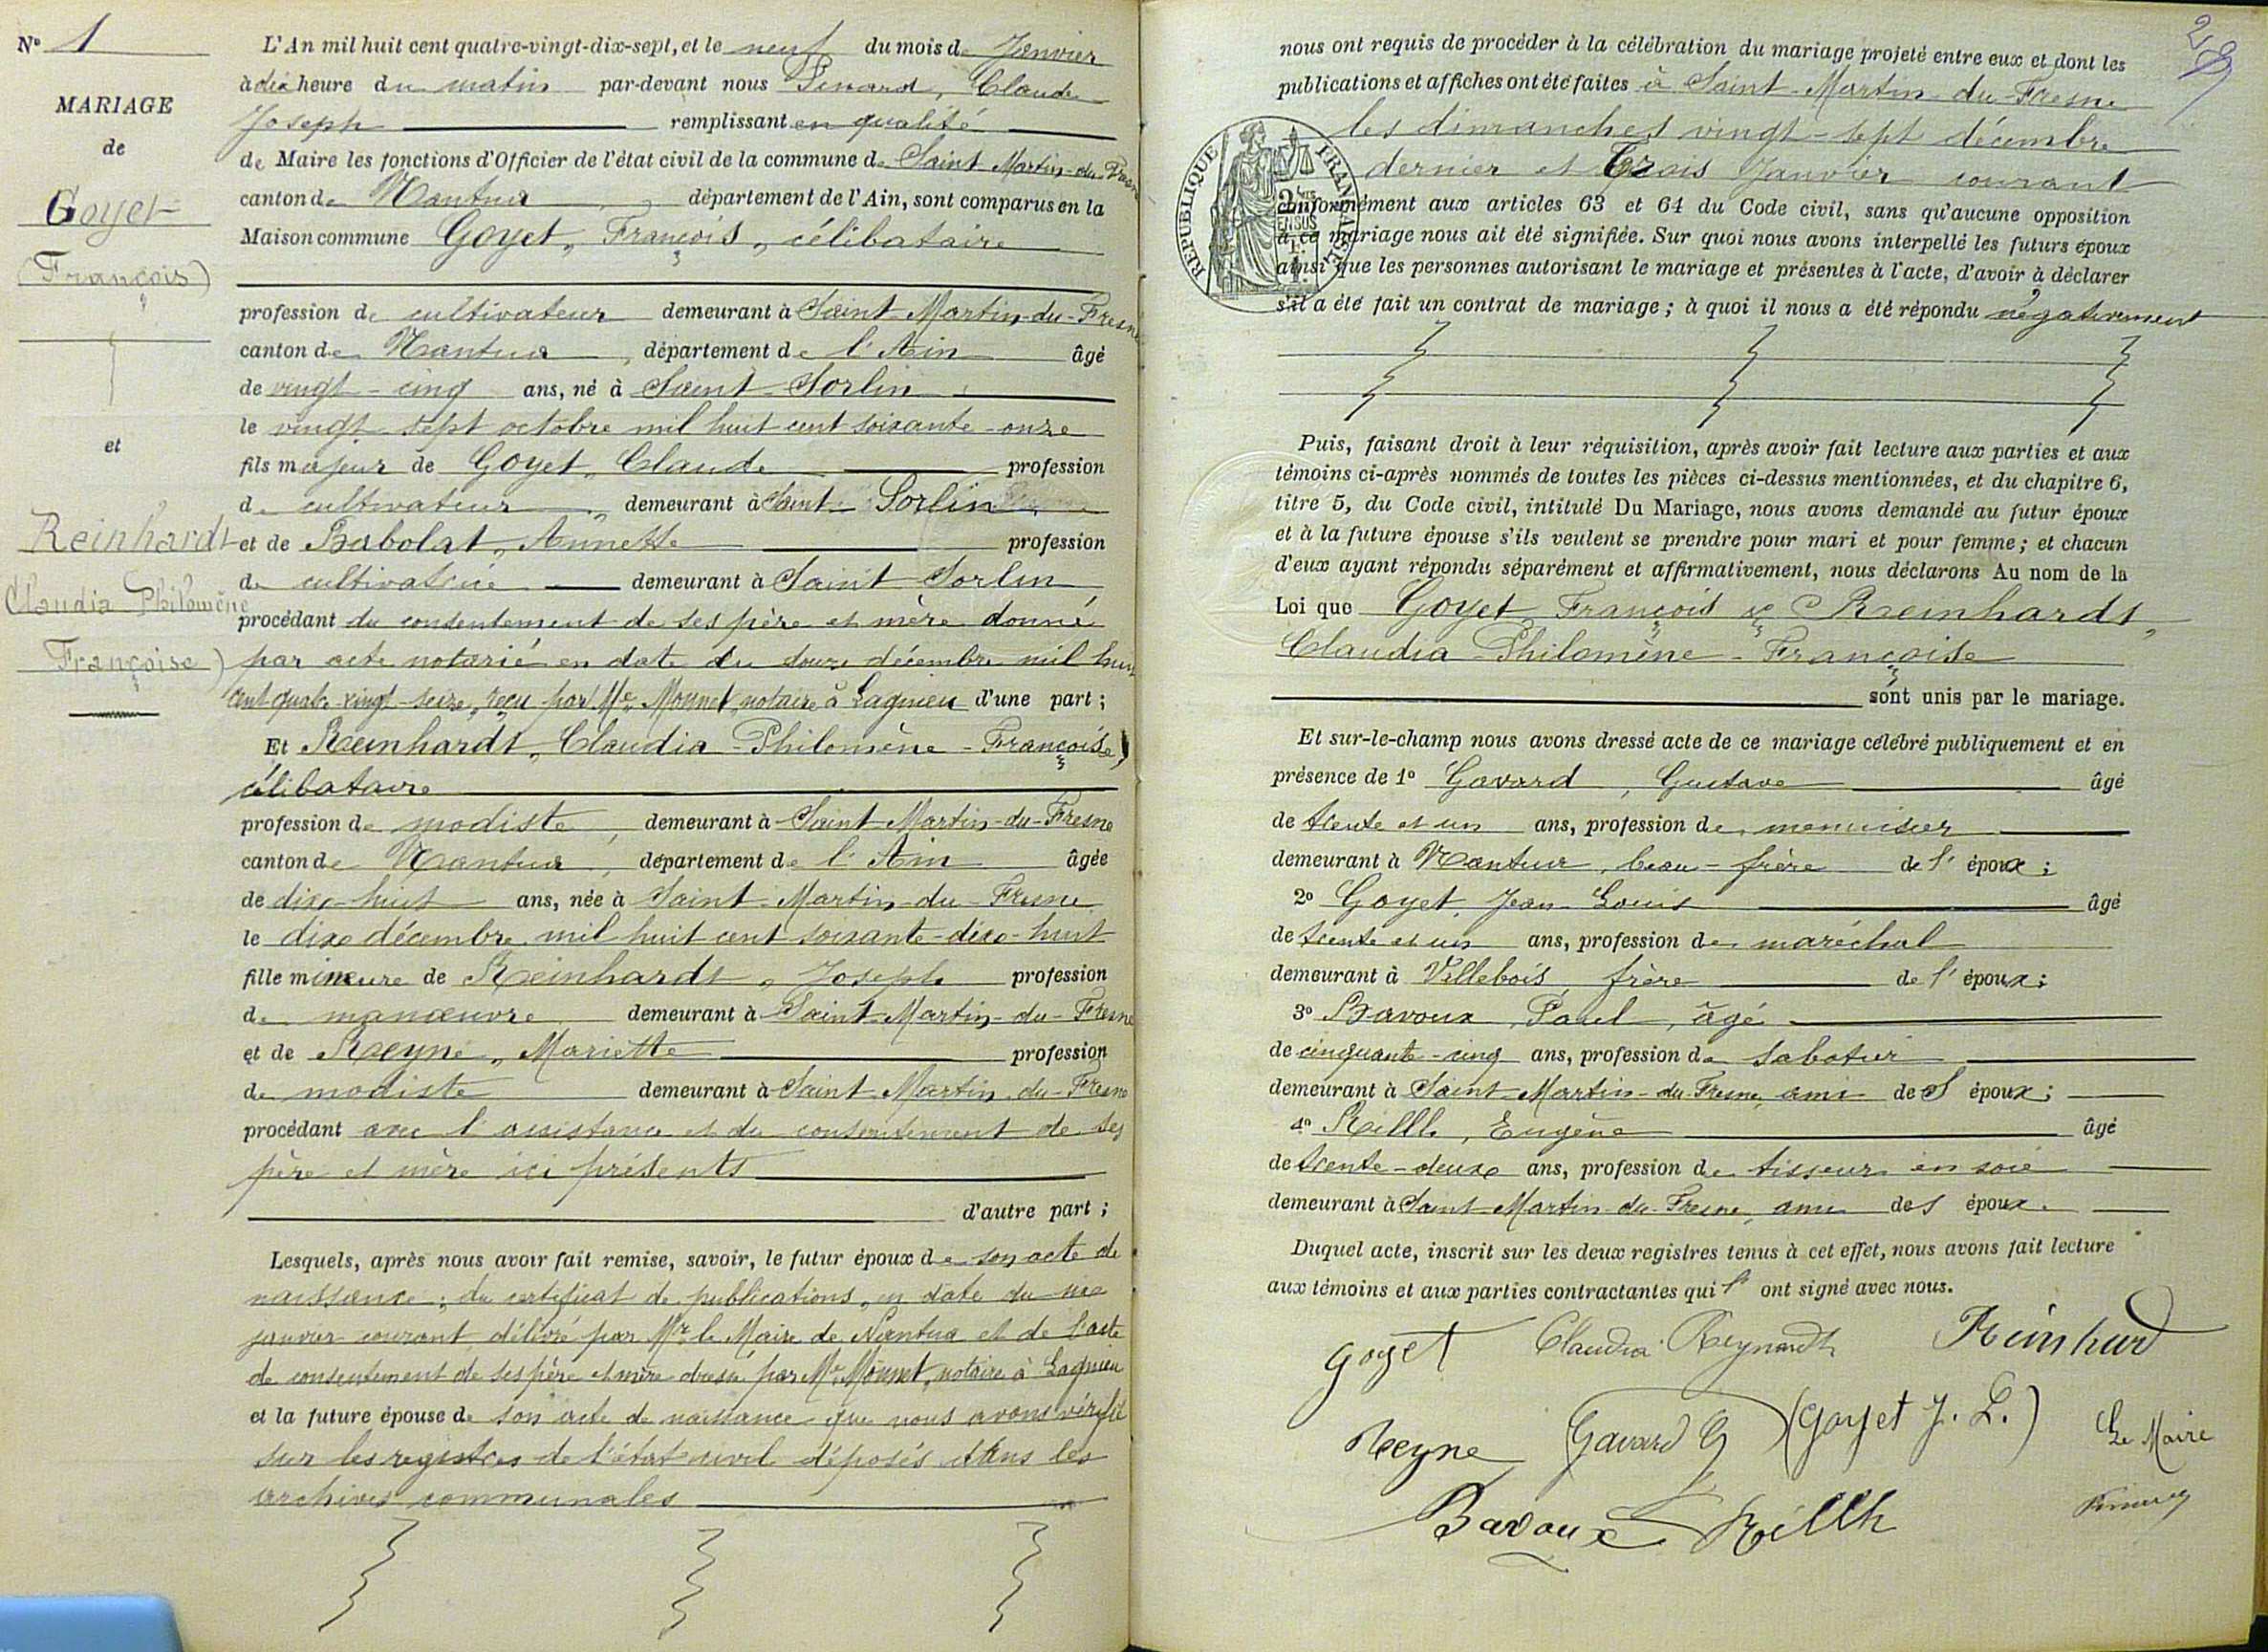 N° 1
MARIAGE
de
Goyet
(François)
et
Reinhardt
Claudia Philomène
Françoise)
L'An mil huit cent quatre-vingt-dix-sept, et le neuf du mois de Janvier
à dix heure du matin par-devant nous Pinard, Claude
Joseph remplissant en qualité
de Maire les fonctions d'Officier de l'état civil de la commune de Saint Martin-du-Fresne
canton de Nantua, département de l'Ain, sont comparus en la
Maison commune Goyet, François, célibataire
profession de cultivateur demeurant à Saint-Martin-du-Fresne
canton de Nantua, département de l'Ain âgé
de vingt-cinq ans, né à Saint-Sorlin
le vingt-sept octobre mil huit cent soixante-onze
fils majeur de Goyet, Claude profession
de cultivateur, demeurant à Saint-Sorlin
et de Babolat, Annette profession
de cultivatrice demeurant à Saint Sorlin
procédant du consentement de ses père et mère donné
par acte notarié en date du douze décembre mil huit
cent quatre-vingt-seize, reçu par Me Monnet, notaire à Lagnieu d'une part;
Et Reinhardt, Claudia-Philomène-Françoise,
célibataire
profession de modiste, demeurant à Saint-Martin-du-Fresne
canton de Nantua, département de l'Ain âgée
de dix-huit ans, née à Saint-Martin-du-Fresne
le dix décembre mil huit cent soixante-dix-huit
fille mineure de Reinhardt, Joseph profession
de manœuvre demeurant à Saint-Martin-du-Fresne
et de Reyne, Mariette profession
de modiste demeurant à Saint-Martin-du-Fresne
procédant avec l'assistance et du consentement de ses
père et mère ici présents
d'autre part;
Lesquels, après nous avoir fait remise, savoir, le futur époux de son acte de
naissance; du certificat de publications, en date du six
janvier courant délivré par Mr le Maire de Nantua et de l'acte
de consentement de ses père et mère dressé par Me Monnet, notaire à Lagnieu
et la future épouse de son acte de naissance que nous avons vérifié
sur les registres de l'état civil déposés dans les
archives communales
nous ont requis de procéder à la célébration du mariage projeté entre eux et dont les
publications et affiches ont été faites à Saint-Martin-du-Fresne
les dimanches vingt-sept décembre
dernier et trois Janvier courant
RÉPUBLIQUE FRANÇAISE
conformément aux articles 63 et 64 du Code civil, sans qu'aucune opposition
à ce mariage nous ait été signifiée. Sur quoi nous avons interpellé les futurs époux
ainsi que les personnes autorisant le mariage et présentes à l'acte, d'avoir à déclarer
s'il a été fait un contrat de mariage; à quoi il nous a été répondu négativement
Puis, faisant droit à leur réquisition, après avoir fait lecture aux parties et aux
témoins ci-après nommés de toutes les pièces ci-dessus mentionnées, et du chapitre 6,
titre 5, du Code civil, intitulé Du Mariage, nous avons demandé au futur époux
et à la future épouse s'ils veulent se prendre pour mari et pour femme; et chacun
d'eux ayant répondu séparément et affirmativement, nous déclarons Au nom de la
Loi que Goyet, François & Reinhardt,
Claudia-Philomène-Françoise
sont unis par le mariage.
Et sur-le-champ nous avons dressé acte de ce mariage célébré publiquement et en
présence de 1° Gavard, Gustave âgé
de trente et un ans, profession de menuisier
demeurant à Nantua, beau-frère de l'époux;
2° Goyet, Jean-Louis âgé
de trente et un ans, profession de maréchal
demeurant à Villebois, frère de l'époux;
3° Bavoux, Paul, âgé
de cinquante-cinq ans, profession de sabotier
demeurant à Saint-Martin-du-Fresne, ami des époux;
4° Rillh, Eugène âgé
de trente-deux ans, profession de tisseur en soie
demeurant à Saint-Martin-du-Fresne, ami des époux.
Duquel acte, inscrit sur les deux registres tenus à cet effet, nous avons fait lecture
aux témoins et aux parties contractantes qui l' ont signé avec nous.
Goyet Claudia Reynardt Reinhard
Reyne Gavard G (Goyet J. L.) Le Maire
Bavoux Rillh Pinard